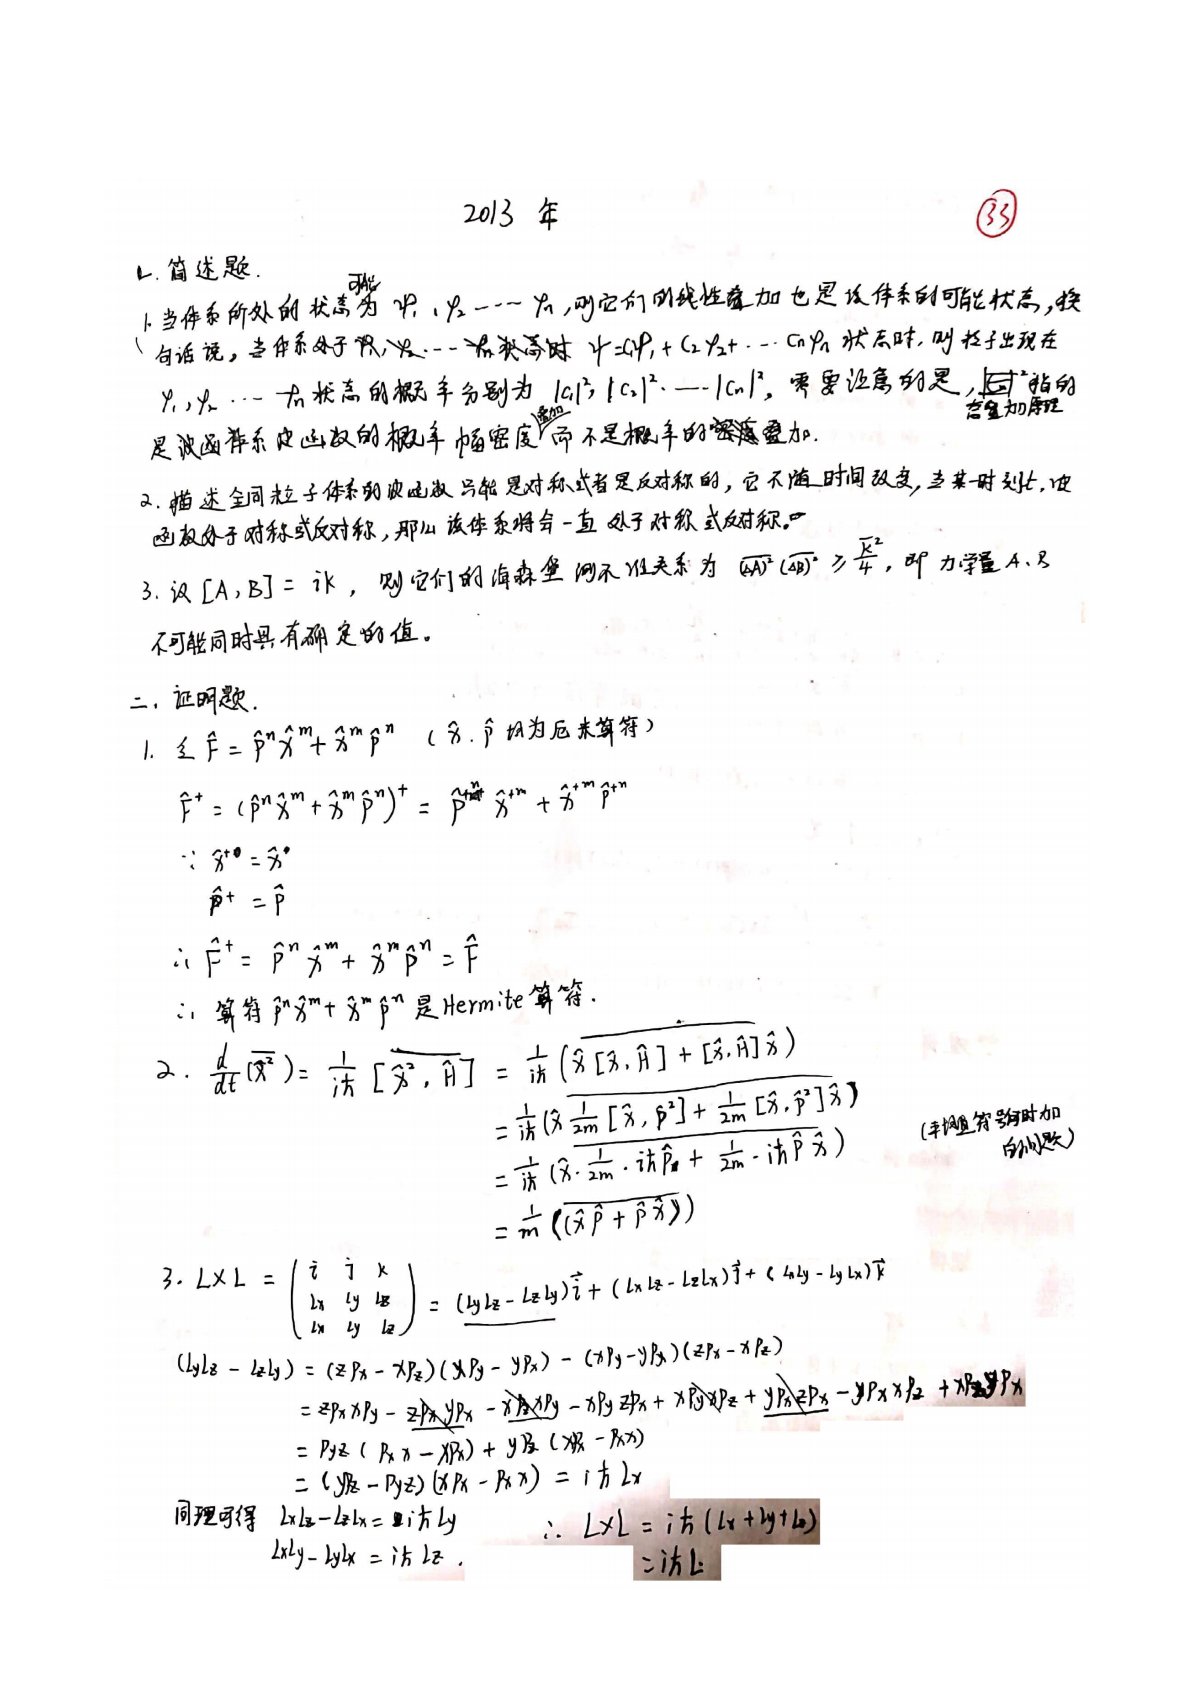 2013 年
33
一. 简述题.
1. 当体系所处的状态可能为 ψ₁, ψ₂ ---- ψn, 则它们的线性叠加也是该体系的可能状态, 换
句话说, 当体系处于 ψ=c₁ψ₁ + c₂ψ₂+ ... cnψn 状态时, 则粒子出现在
ψ₁, ψ₂ ... ψn 状态的概率分别为 |c₁|², |c₂|² .... |cn|², 需要注意的是, 指的
态叠加原理
是波函数的概率幅密度叠加而不是概率的叠加.
2. 描述全同粒子体系的波函数只能是对称或者是反对称的, 它不随时间改变, 当某一时刻t, 波
函数处于对称或反对称, 那么该体系将会一直处于对称或反对称。
3. 设 [A, B] = ik, 则它们的海森堡测不准关系为 \overline{(ΔA)²} \overline{(ΔB)²} ≥ \overline{k}²/4, 即力学量 A、B
不可能同时具有确定的值。
二. 证明题.
1. 令 F̂ = p̂ⁿx̂ᵐ + x̂ᵐp̂ⁿ ( x̂. p̂ 均为厄米算符)
F̂⁺ = (p̂ⁿx̂ᵐ + x̂ᵐp̂ⁿ)⁺ = p̂⁺ⁿ x̂⁺ᵐ + x̂⁺ᵐ p̂⁺ⁿ
∵ x̂⁺ = x̂
p̂⁺ = p̂
∴ F̂⁺ = p̂ⁿ x̂ᵐ + x̂ᵐ p̂ⁿ = F̂
∴ 算符 p̂ⁿx̂ᵐ + x̂ᵐ p̂ⁿ 是Hermite算符.
2. d/dt (\overline{x̂²}) = 1/iħ \overline{[x̂², Ĥ]} = 1/iħ (\overline{x̂ [x̂, Ĥ] + [x̂, Ĥ] x̂})
= 1/iħ (\overline{x̂ 1/2m [x̂, p̂²] + 1/2m [x̂, p̂²] x̂})
(平均值符号何时加
的问题)
= 1/iħ (\overline{x̂ · 1/2m · iħp̂ + 1/2m · iħ p̂ x̂})
= 1/m (\overline{(x̂p̂ + p̂x̂)})
3. L×L = ( i j k
Lx Ly Lz
Lx Ly Lz ) = (LyLz - LzLy)i⃗ + (LxLz - LzLx)j⃗ + (LxLy - LyLx)k⃗
(LyLz - LzLy) = (zPx - xPz)(xPy - yPx) - (xPy - yPx)(zPx - xPz)
= zPx xPy - zPx yPx - xPz xPy - xPy zPx + xPy xPz + yPx zPx - yPx xPz + xPz yPx
= Pyz (Px x - xPx) + yPz (xPx - Px x)
= (yPz - Pyz)(xPx - Px x) = iħ Lx
同理可得 LxLz - LzLx = iħ Ly
∴ L×L = iħ (Lx + Ly + Lz)
LxLy - LyLx = iħ Lz .
= iħ L